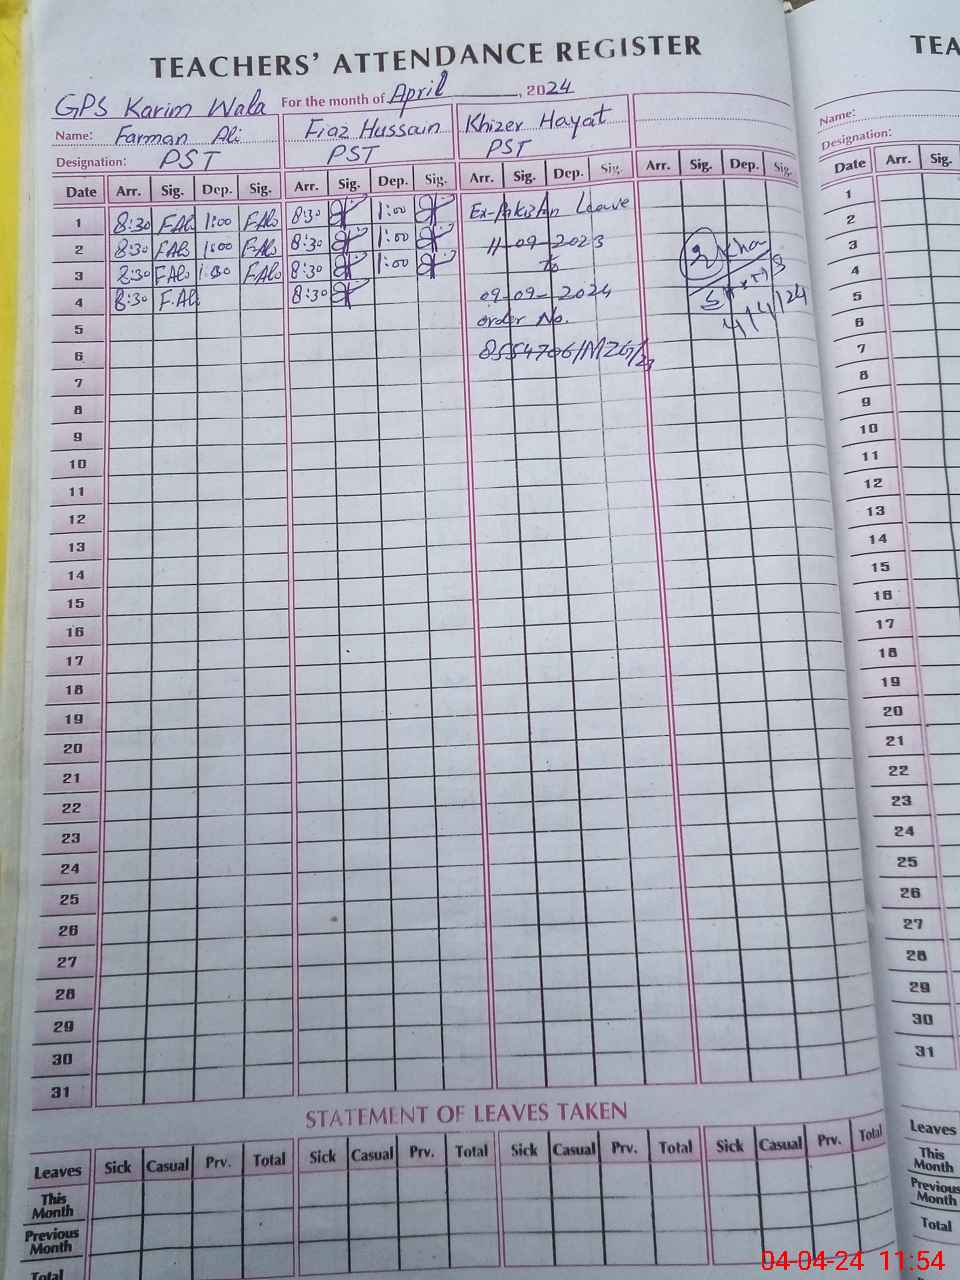 TEACHERS' ATTENDANCE REGISTER
GPS Karim Wala For the month of April, 2024
Name: Farman Ali Fiaz Hussain Khizer Hayat
Designation: PST PST PST
Date Arr. Sig. Dep. Sig. Arr. Sig. Dep. Sig. Arr. Sig. Dep. Sig. Arr. Sig. Dep. Sig.
1 8:30 F.Ali 1:00 F.Ali 8:30 1:00 Ex-Pakistan Leave
2 8:30 F.Ali 1:00 F.Ali 8:30 1:00 11-09-2023
3 8:30 F.Ali 1:00 F.Ali 8:30 1:00 to
4 8:30 F.Ali 8:30 09-09-2024
5 order No. 4/4/24
6 8554706/MZG/23
7
8
9
10
11
12
13
14
15
16
17
18
19
20
21
22
23
24
25
26
27
28
29
30
31
STATEMENT OF LEAVES TAKEN
Leaves Sick Casual Prv. Total Sick Casual Prv. Total Sick Casual Prv. Total Sick Casual Prv. Total
This Month
Previous Month
Total
TEA
Name:
Designation:
Date Arr. Sig.
1
2
3
4
5
6
7
8
9
10
11
12
13
14
15
16
17
18
19
20
21
22
23
24
25
26
27
28
29
30
31
Leaves
This Month
Previous Month
Total
04-04-24 11:54